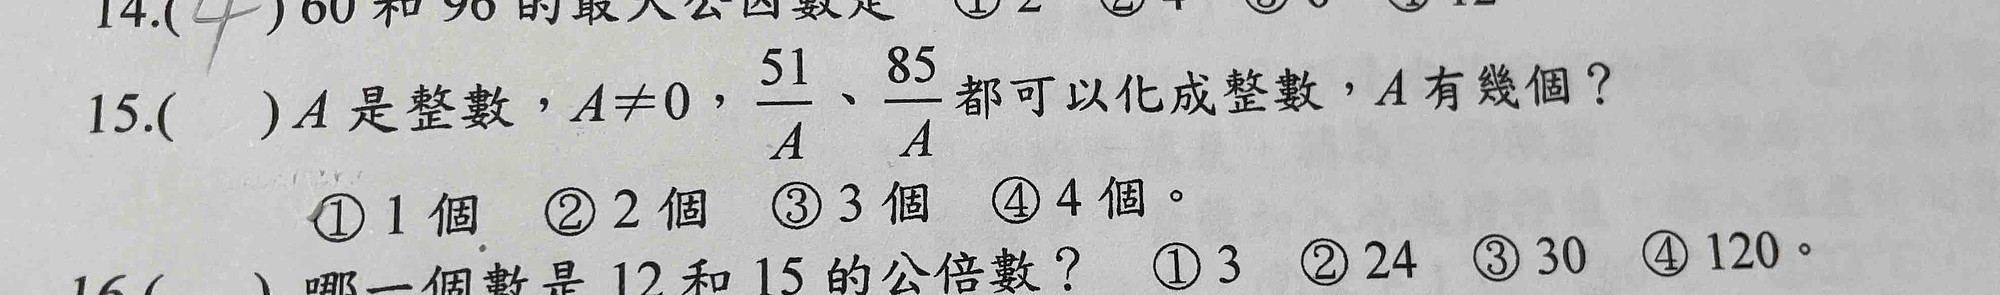 14.(4)60 和 96 的最大公因數是 ① 2 ② 4 ③ 6 ④ 12
15.( ) A 是整數，A≠0，51/A、85/A 都可以化成整數，A 有幾個？
① 1 個 ② 2 個 ③ 3 個 ④ 4 個。
16.( ) 哪一個數是 12 和 15 的公倍數？ ① 3 ② 24 ③ 30 ④ 120。